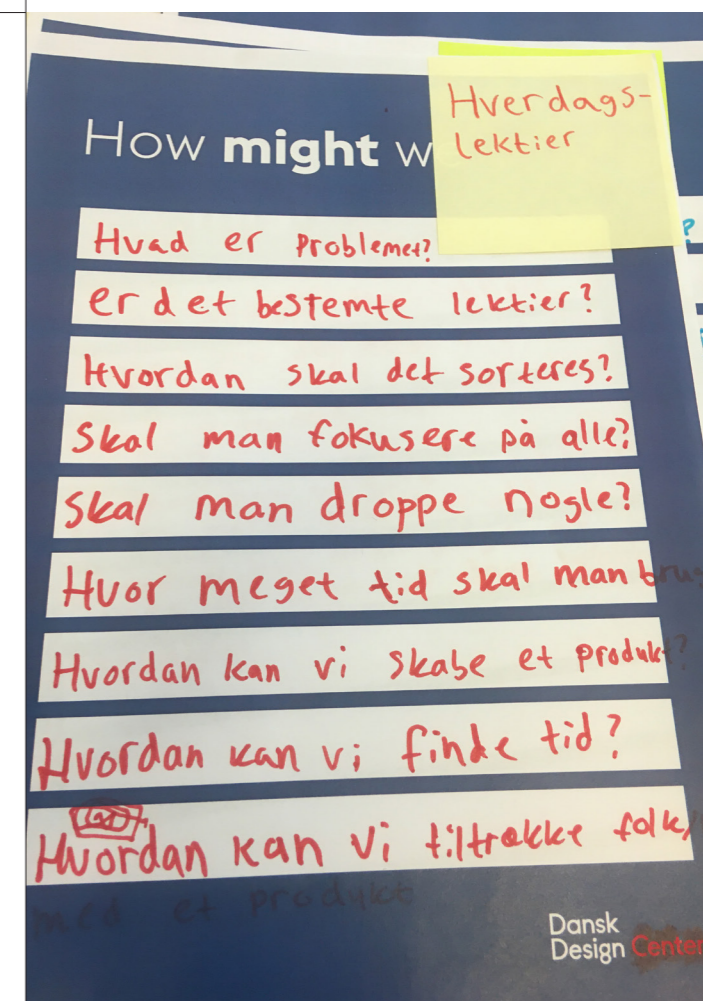 How might w
Hverdags-
lektier
Hvad er problemet?
er det bestemte lektier?
Hvordan skal det sorteres?
Skal man fokusere på alle?
Skal man droppe nogle?
Hvor meget tid skal man brug
Hvordan kan vi skabe et produkt?
Hvordan kan vi finde tid?
Hvordan kan vi tiltrække folk
med et produkt
Dansk
Design Center